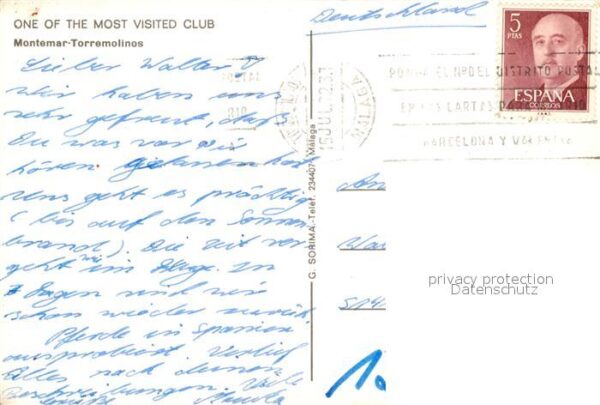 ONE OF THE MOST VISITED CLUB
Montemar-Torremolinos
Deutschland
Lieber Walter!
Wir haben uns
sehr gefreut, daß
Du was von Dir
hören gelassen hast
Uns geht es prächtig
(bis auf den Sonnen
brand). Die Zeit ver
geht wie im Flug. In
Tagen sind wir
schon wieder zurück
Pferde in Spanien
ausprobiert. Verlief
Alles nach deinen
Beschreibungen. Viele
Grüße
G. SORIMA.-Teléf. 234407 Málaga
5
PTAS
ESPAÑA
CORREOS
PONGA EL Nº DEL DISTRITO POSTAL
EN LAS CARTAS PARA
BARCELONA Y VALENCIA
MALAGA
An
privacy protection
Datenschutz